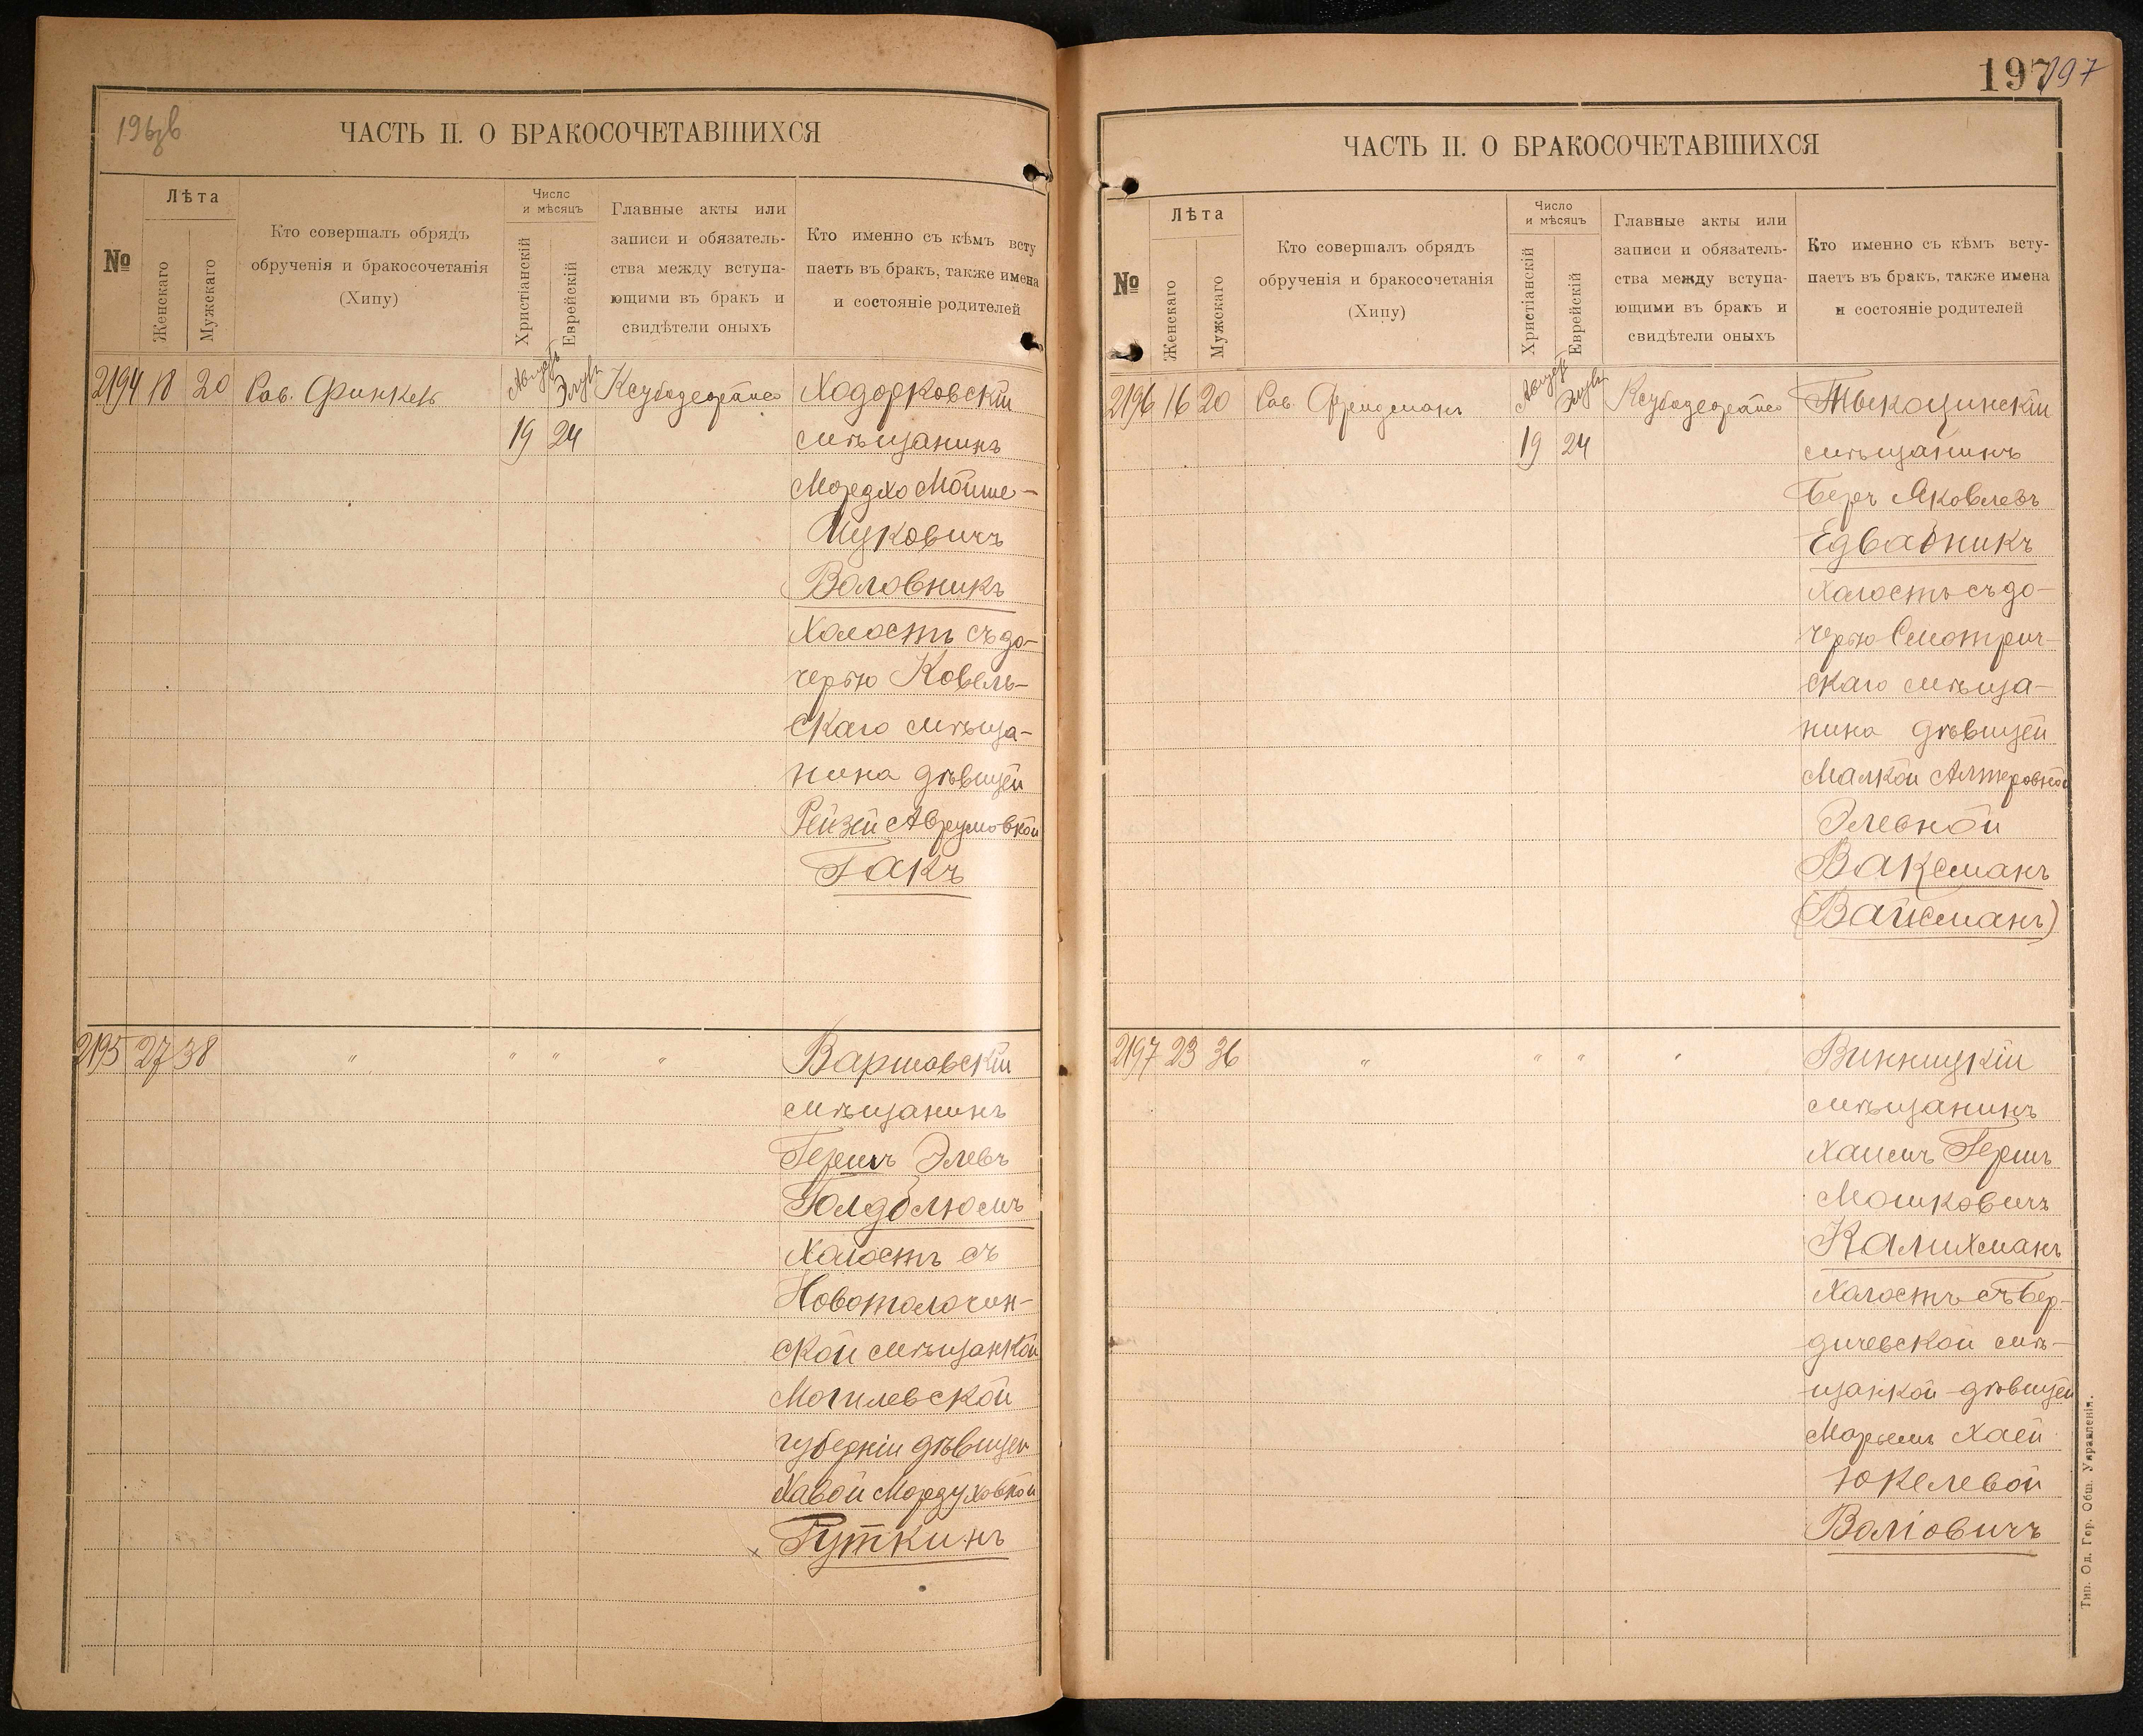 196зв
ЧАСТЬ II. О БРАКОСОЧЕТАВШИХСЯ
№
Лѣта
Женскаго
Мужскаго
Кто совершалъ обрядъ
обрученія и бракосочетанія
(Хипу)
Число
и мѣсяцъ
Христіанскій
Еврейскій
Главные акты или
записи и обязатель-
ства между вступа-
ющими въ бракъ и
свидѣтели оныхъ
Кто именно съ кѣмъ всту
паетъ въ бракъ, также имена
и состояніе родителей
2194 18 20 Рав. Финкель Августъ Элулъ Ходорковскій
19 24 мѣщанинъ
Мордхо Мойше-
Ицковичъ
Воловникъ
Холостъ съ до-
черью Ковель-
скаго мѣща-
нина дѣвицей
Рейзей Аврумовной
Гакъ
2195 27 38 " " " " Варшавскій
мѣщанинъ
Гершъ Элевъ
Голдблюмъ
Холостъ съ
Новотолочин-
ской мѣщанкой
Могилевской
губерніи дѣвицей
Хавой Мордуховной
Гуткинъ
197 197
ЧАСТЬ II. О БРАКОСОЧЕТАВШИХСЯ
№
Лѣта
Женскаго
Мужскаго
Кто совершалъ обрядъ
обрученія и бракосочетанія
(Хипу)
Число
и мѣсяцъ
Христіанскій
Еврейскій
Главные акты или
записи и обязатель-
ства между вступа-
ющими въ бракъ и
свидѣтели оныхъ
Кто именно съ кѣмъ всту-
паетъ въ бракъ, также имена
и состояніе родителей
2196 16 20 Рав. Фридманъ Августъ Элулъ Тыкоцинскій
19 24 мѣщанинъ
Беръ Яковлевъ
Едвабникъ
Холостъ съ до-
черью Смотрич-
скаго мѣща-
нина дѣвицей
Малкой Алтеровной
Элевной
Ваксманъ
(Вайсманъ)
2197 23 36 " " " " Винницкій
мѣщанинъ
Хаимъ Гершъ
Мошковичъ
Калихманъ
Холостъ съ Бер-
дичевской мѣ-
щанкой дѣвицей
Марьемъ Хаей
Юкелевой
Валіовичъ
Тип. Од. Гор. Общ. Управленія.